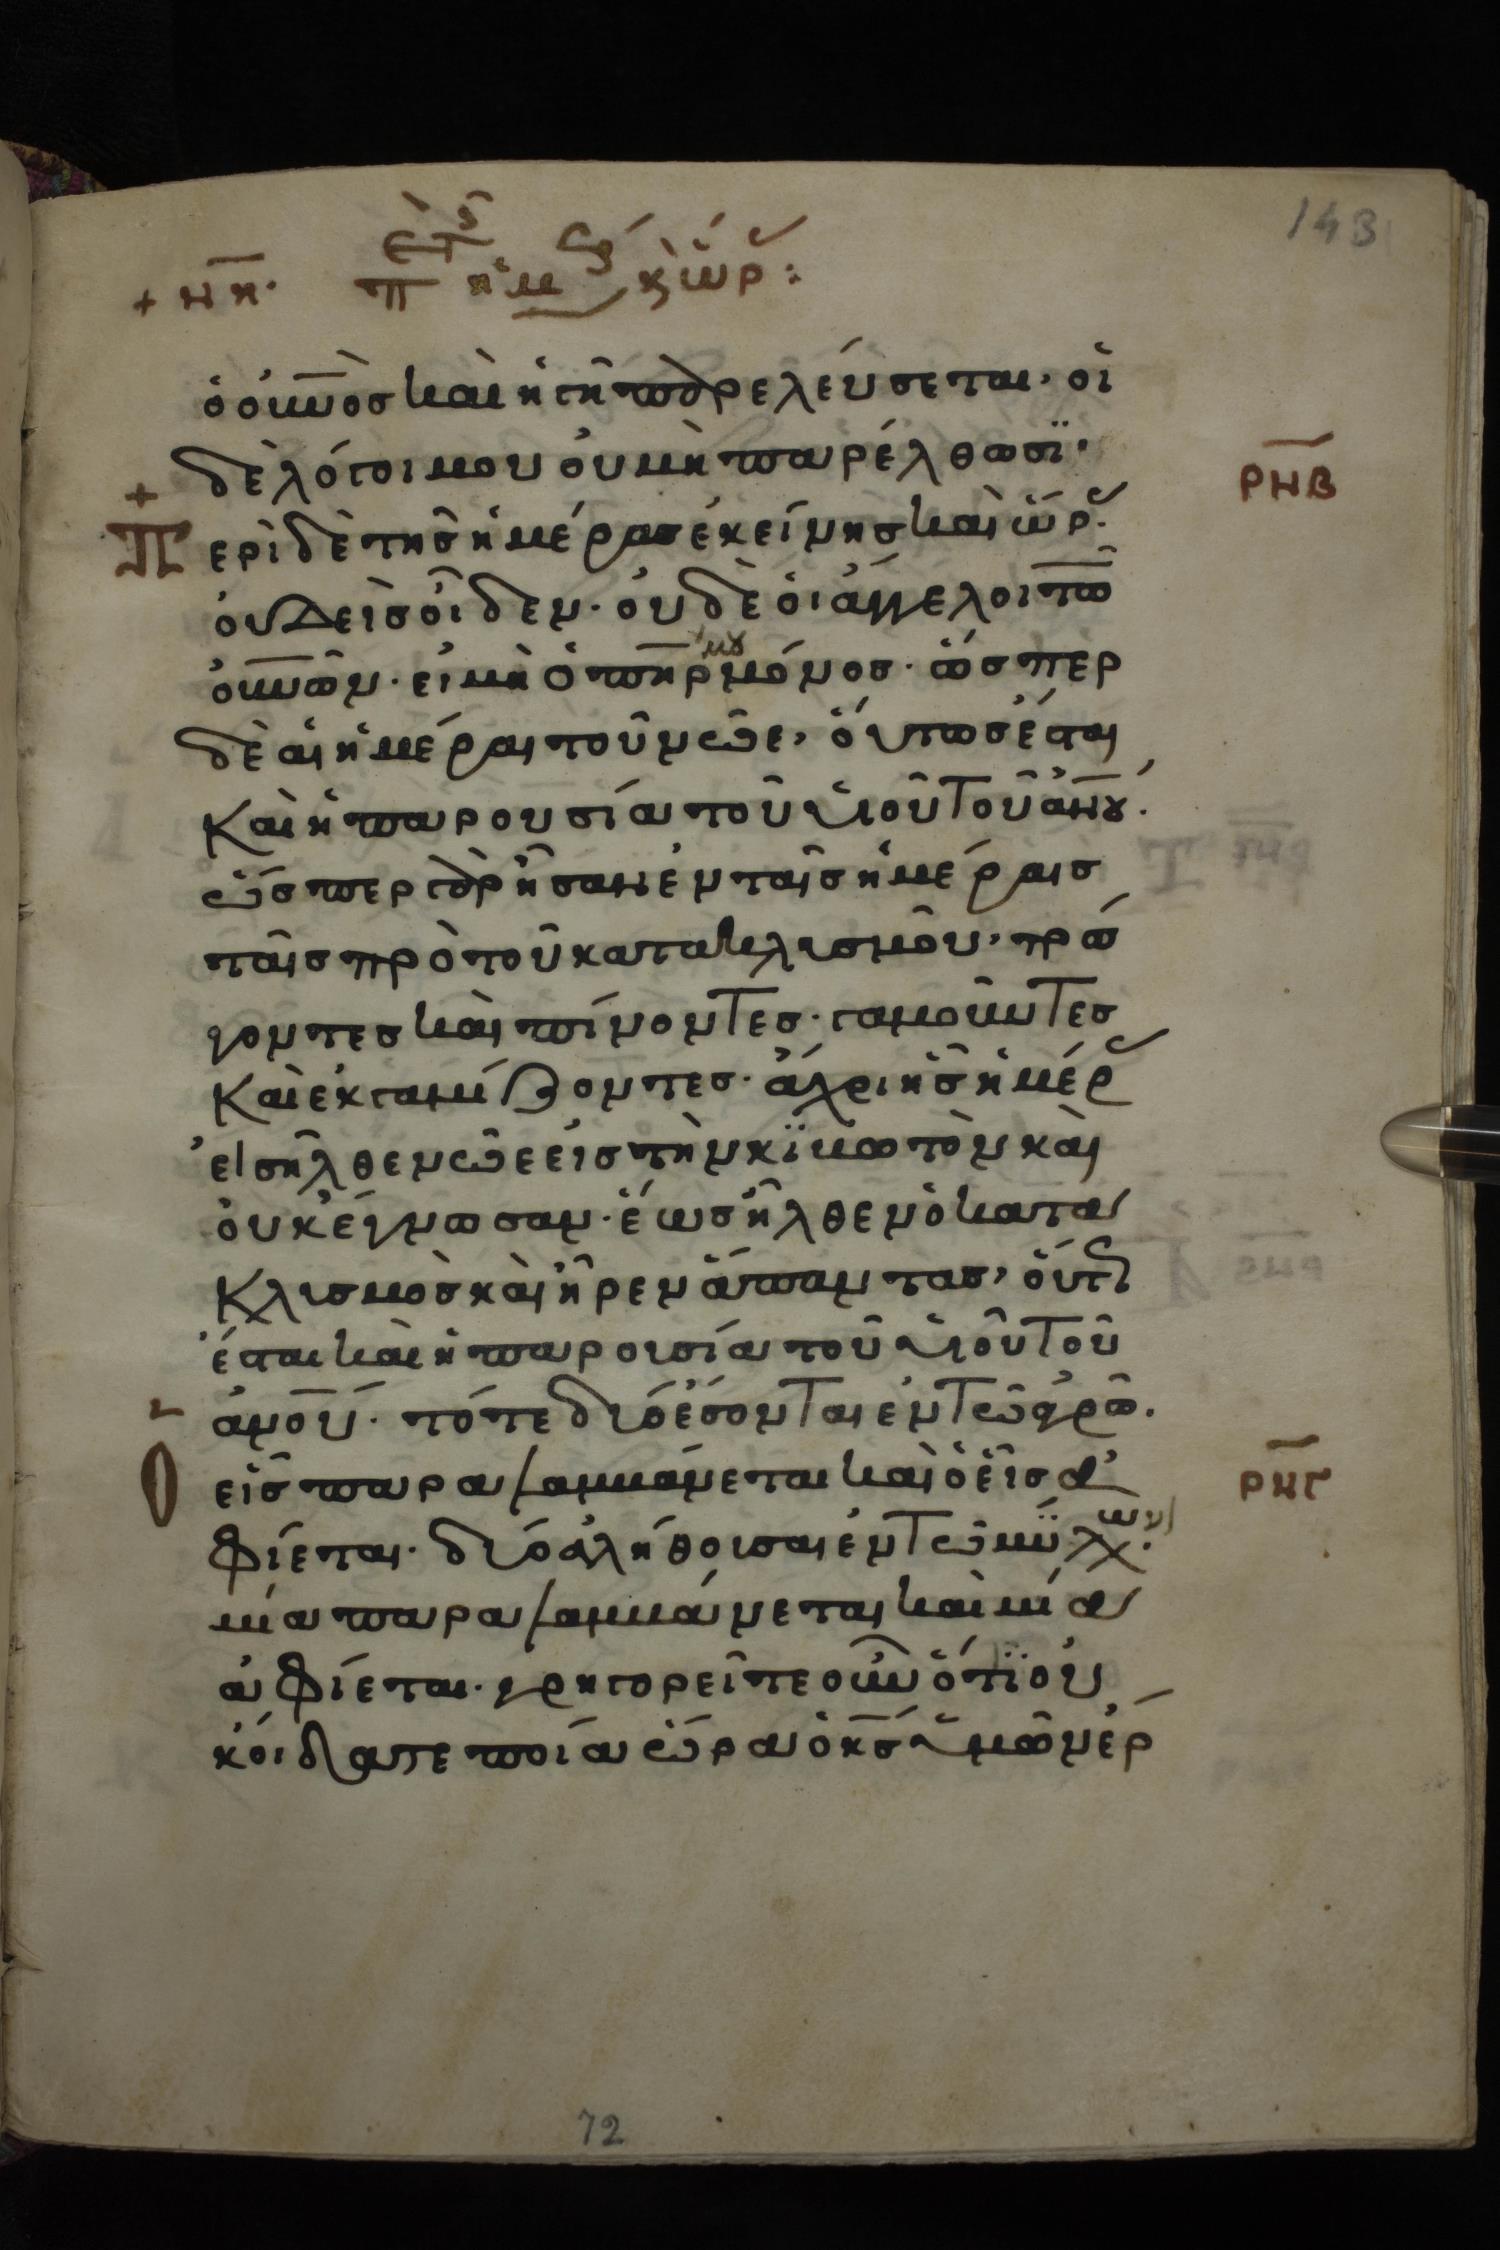 143
+ νη. περὶ τῆς ἡμέ κ ὥρ:
ὁ οὐνὸσ καὶ ἡ γῆ παρελεύσεται, οἱ
δὲ λόγοι μου οὐ μὴ παρέλθωσϊ·
ρηβ
+
Περὶ δὲ τησ ἡμέρασ ἐκείνησ καὶ ὥρ·
οὐδεὶσ οἶδεν· οὐδὲ οἱ ἄγγελοι τῶ
οὐνῶν· εἰ μὴ ὁ πηρ μου μόνοσ· ὥσπερ
δὲ αἱ ἡμέραι τοῦ νῶε, οὕτωσ ἔσται
Καὶ ἡ παρουσία τοῦ υἱοῦ τοῦ ἀνου·
ὥσπερ γὰρ ἦσαν ἐν ταῖσ ἡμέραισ
ταῖσ πρὸ τοῦ κατακλυσμοῦ, τρώ
γοντεσ καὶ πίνοντεσ· γαμοῦντεσ
Καὶ ἐκγαμίζοντεσ· ἄχρι ἧσ ἡμέρ
εἰσῆλθε νῶε εἰσ τὴν κϊβωτὸν καὶ
οὐκ ἔγνωσαν· ἕωσ ἦλθεν ὁ κατα
Κλυσμὸσ καὶ ἦρεν ἅπαντασ, οὕτ
ἔσται καὶ ἡ παρουσία τοῦ υἱοῦ τοῦ
ἀνοῦ· τότε δύο ἔσονται ἐν τῶ ἀγρῶ·
Ο
εἷσ παραλαμβάνεται καὶ ὁ εἷσ ἀ
ρηγ
φίεται· δύο ἀλήθουσαι ἐν τῶ μϋλωνι·
μία παραλαμβάνεται καὶ μία
ἀφίεται· γρηγορεῖτε οὖν ὅτϊ οὐ
κ οἴδατε ποία ὥρα ὁ κσ ὑμῶν ἔρ
72